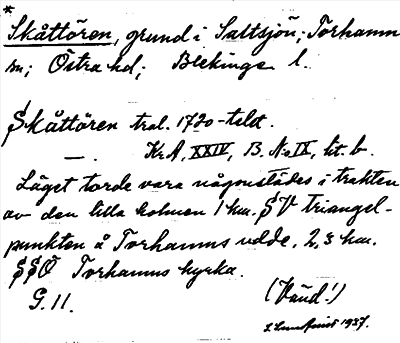 *
Skåttören, grund i Saltsjön; Torhamn
sn; Östra hd; Blekinge l.
Skåttören tral. 1720-talet.
— . Kr.A, XXIV, B. No IX, lit. b.
Läget torde vara någonstädes i trakten
av den lilla holmen 1 km. SV triangel-
punkten å Torhamns udde, 2,3 km.
SSO Torhamns kyrka.
G. 11.
(Vänd!)
1937.